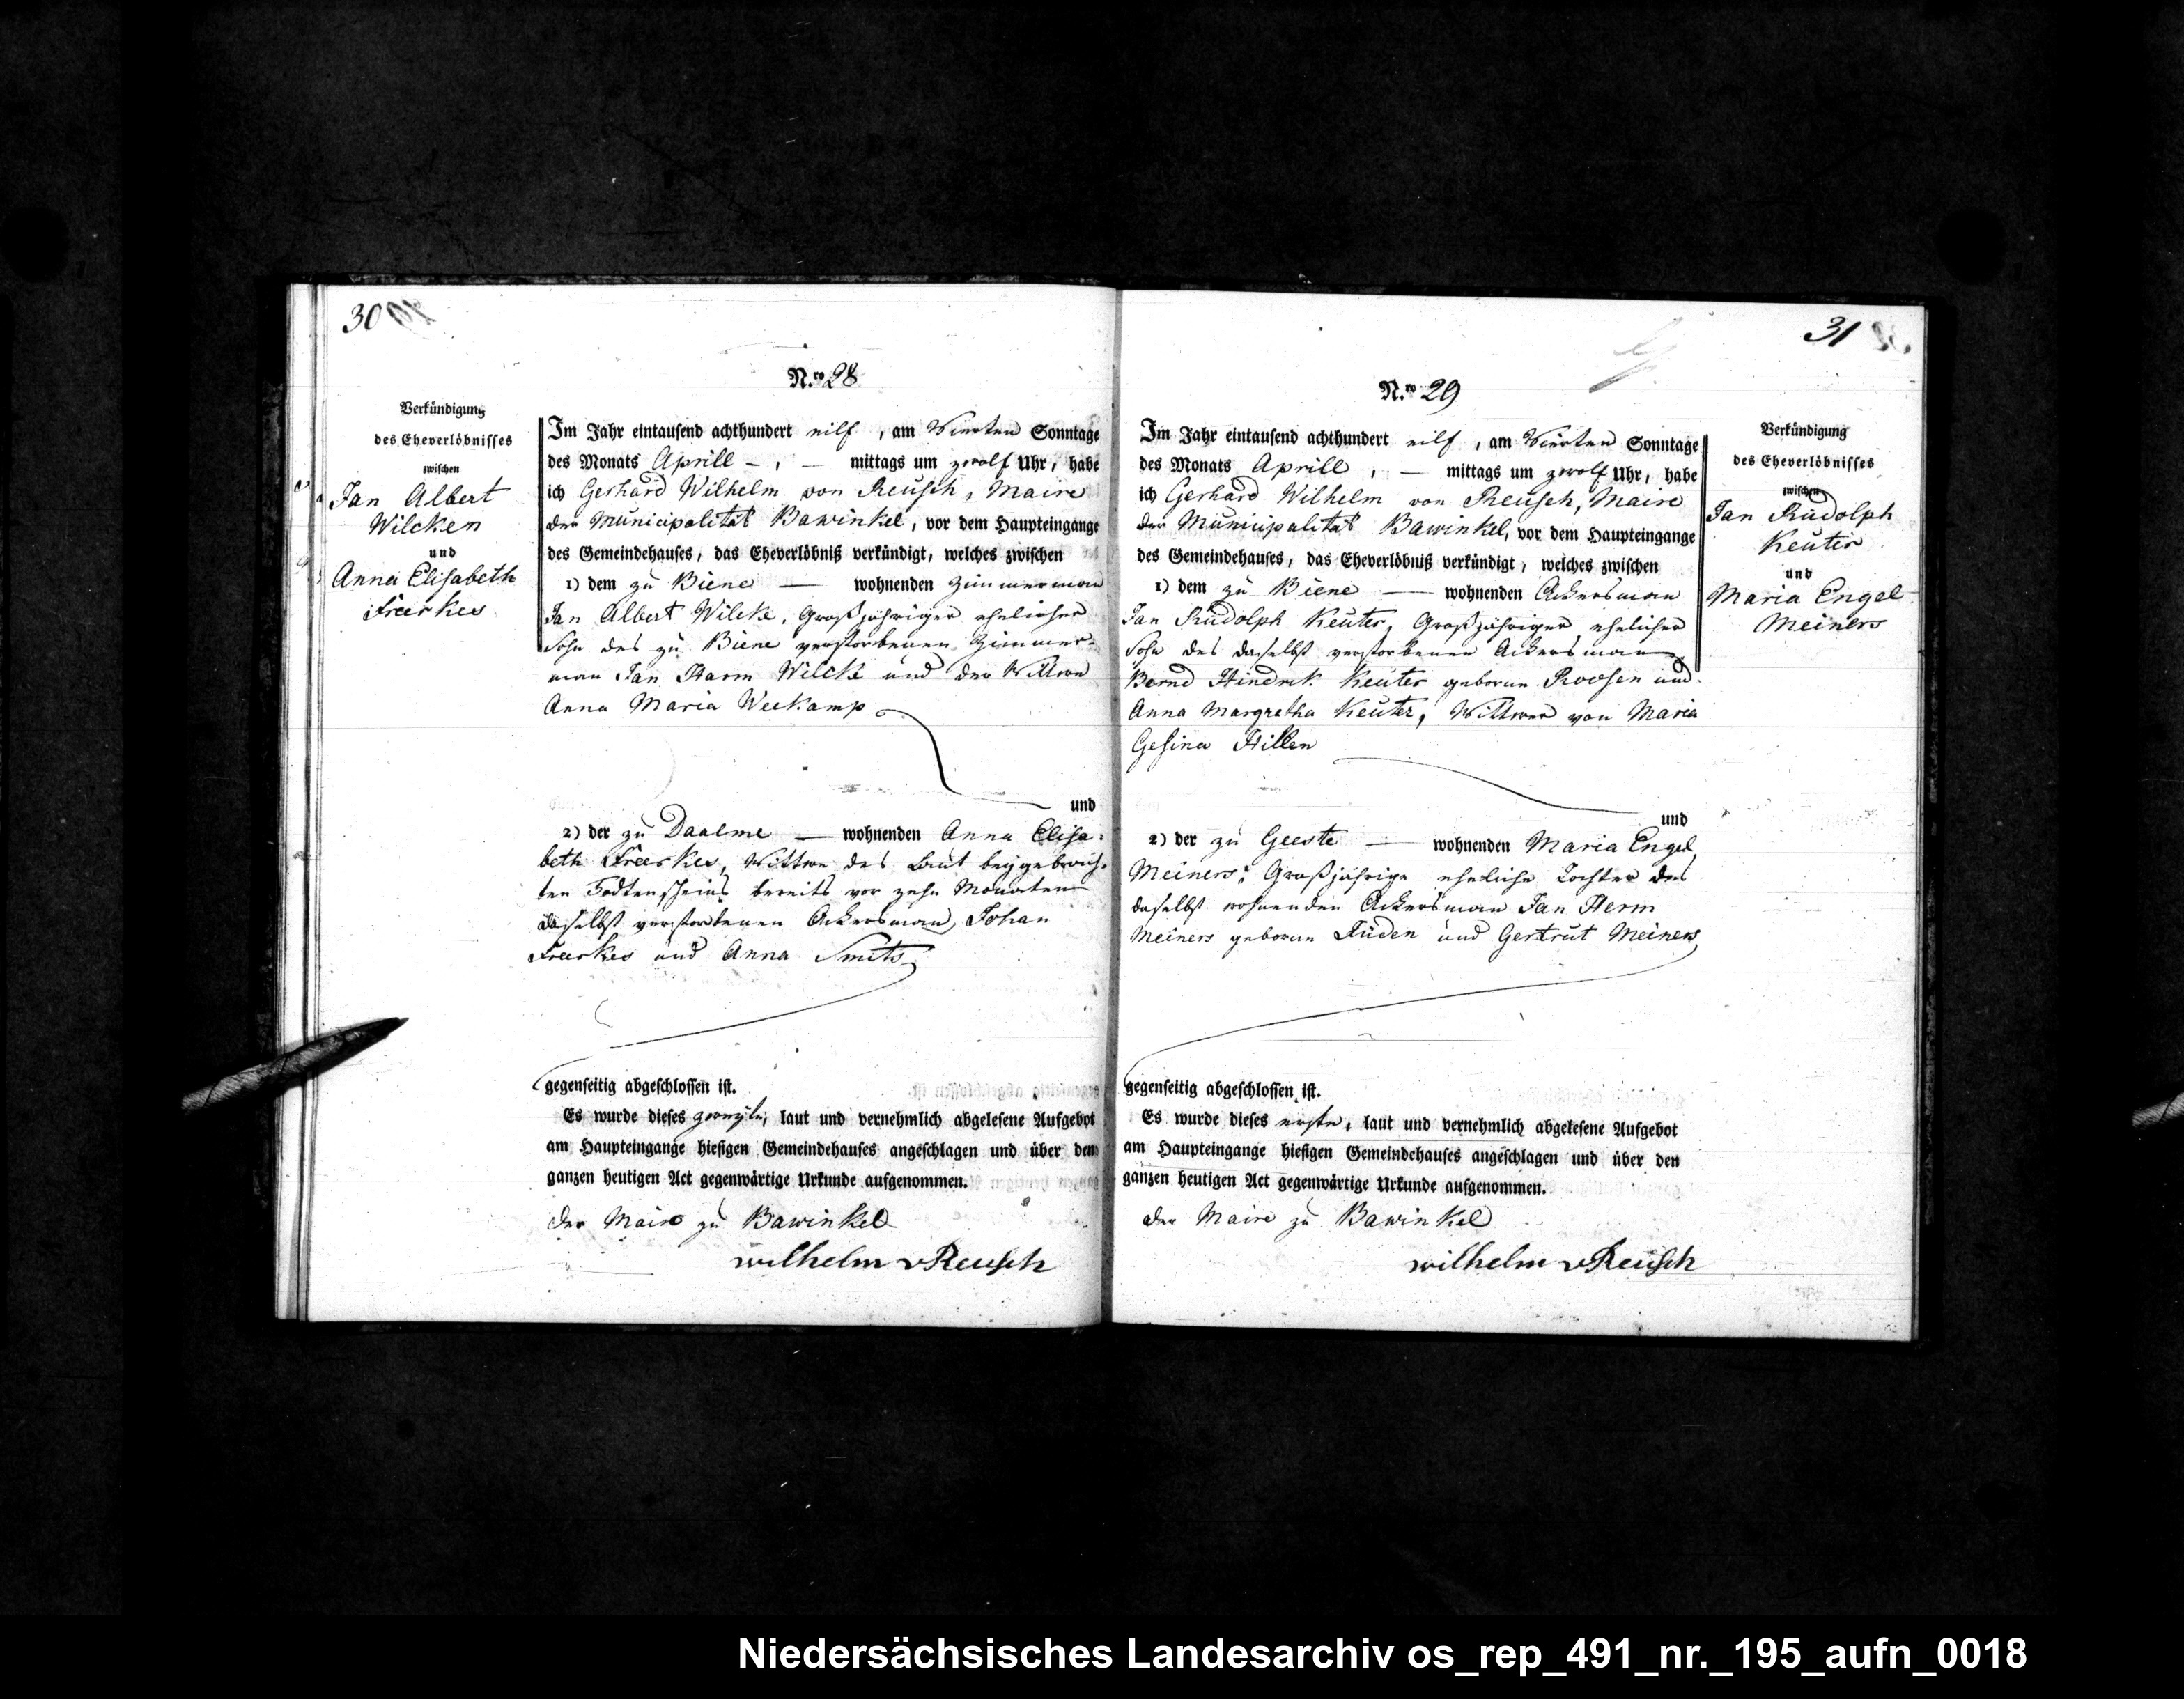 30
N.ro 28
Verkündigung
des Eheverlöbnisses
zwischen
Jan Albert
Wilcken
und
Anna Elisabeth
Freerkes
Im Jahr eintausend achthundert eilf, am Vierten Sonntage
des Monats Aprill — , — mittags um zwolf Uhr, habe
ich Gerhard Wilhelm von Reusch, Maire
der Municipalität Bawinkel, vor dem Haupteingange
des Gemeindehauses, das Eheverlöbniß verkündigt, welches zwischen
1) dem zu Biene — wohnenden Zimmerman
Jan Albert Wilcke, Großjähriger ehelicher
Sohn des zu Biene verstorbenen Zimmer-
man Jan Harm Wilcke und der Wittwe
Anna Maria Weekamp
und
2) der zu Daalme — wohnenden Anna Elisa-
beth Freerkes, Wittwe des laut beygebrach-
ten Todtenscheins bereits vor zehn Monaten
daselbst verstorbenen Ackersman, Johan
Freerkes und Anna Smits
gegenseitig abgeschlossen ist.
Es wurde dieses zweyte, laut und vernehmlich abgelesene Aufgebot
am Haupteingange hiesigen Gemeindehauses angeschlagen und über den
ganzen heutigen Act gegenwärtige Urkunde aufgenommen.
der Maire zu Bawinkel
wilhelm vReusch
31
N.ro 29
Im Jahr eintausend achthundert eilf, am Vierten Sonntage
des Monats Aprill , — mittags um zwolf Uhr, habe
ich Gerhard Wilhelm von Reusch, Maire
der Municipalität Bawinkel, vor dem Haupteingange
des Gemeindehauses, das Eheverlöbniß verkündigt, welches zwischen
1) dem zu Biene — wohnenden Ackersman
Jan Rudolph Keuter, Großjähriger ehelicher
Sohn des daselbst verstorbenen Ackersman
Bernd Hindrik Keuter geboren Roosen und
Anna Margretha Keuter, Wittwer von Maria
Gesina Hillen
und
2) der zu Geeste — wohnenden Maria Engel
Meiners, Großjährige eheliche Tochter des
daselbst wohnenden Ackersman Jan Herm
Meiners geboren Lüden und Gertrut Meiners
gegenseitig abgeschlossen ist.
Es wurde dieses erste, laut und vernehmlich abgelesene Aufgebot
am Haupteingange hiesigen Gemeindehauses angeschlagen und über den
ganzen heutigen Act gegenwärtige Urkunde aufgenommen.
der Maire zu Bawinkel
wilhelm vReusch
Verkündigung
des Eheverlöbnisses
zwischen
Jan Rudolph
Keuter
und
Maria Engel
Meiners
Niedersächsisches Landesarchiv os_rep_491_nr._195_aufn_0018